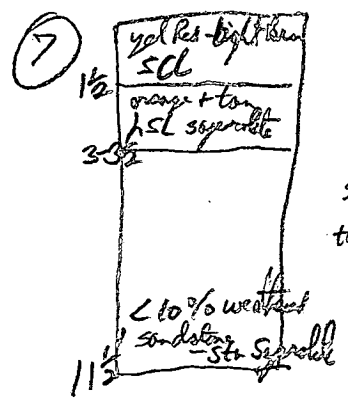 7
yel Res - light brn
SCL
1½
orange + tan
LSL saprolite
3-3½
<10% weathered
sandstone
- Stn Saprolite
11½'